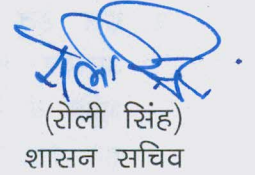 (रोली सिंह)
शासन सचिव